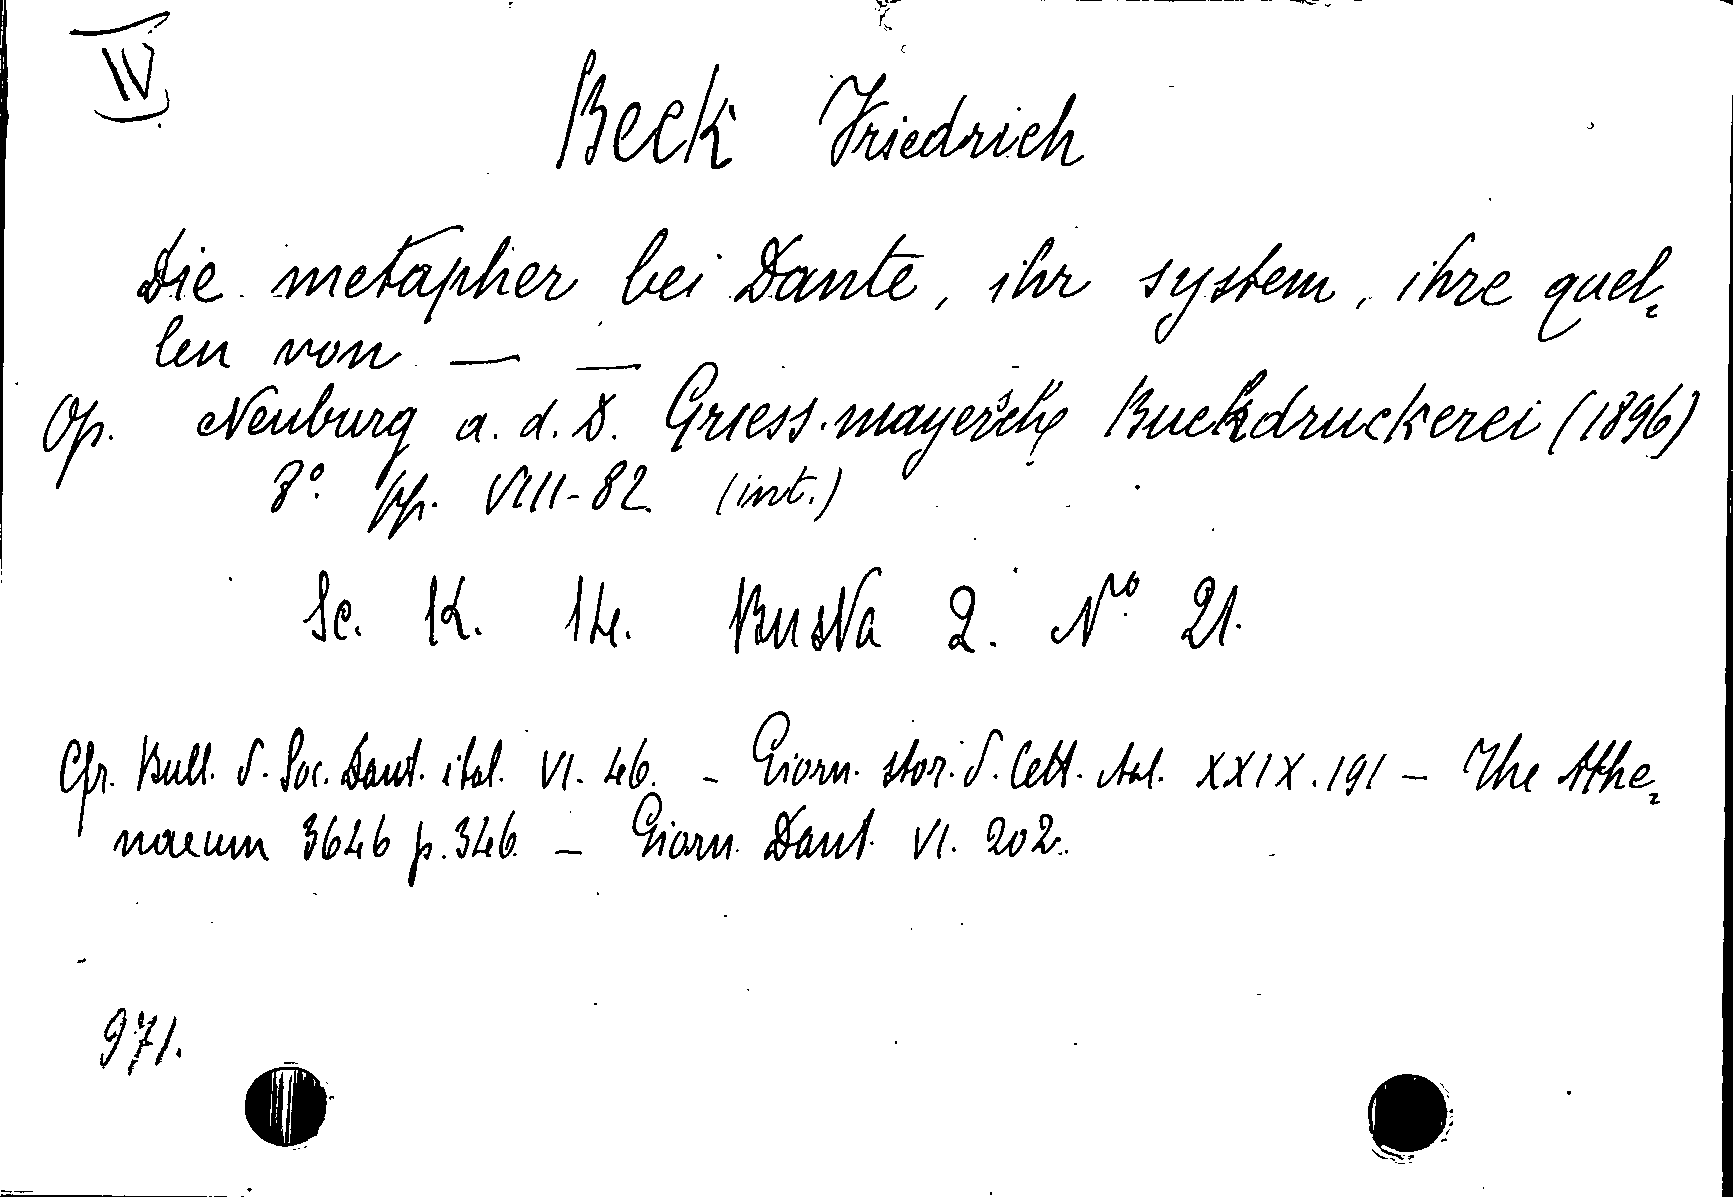 IV
Beck Friedrich
Die metapher bei Dante, ihr system, ihre quel=
len von — —
Op. Neuburg a. d. D. Griess.mayersche Buchdruckerei (1896)
8º. pp. VIII-82. (int.)
Sc. K. 14. Busta 2. Nº 21.
Cfr. Bull. d. Soc. Dant. ital. VI. 46. - Giorn. stor. d. Lett. ital. XXIX. 191 - The Athe=
naeum 3646 p. 346 - Giorn. Dant. VI. 202.
971.